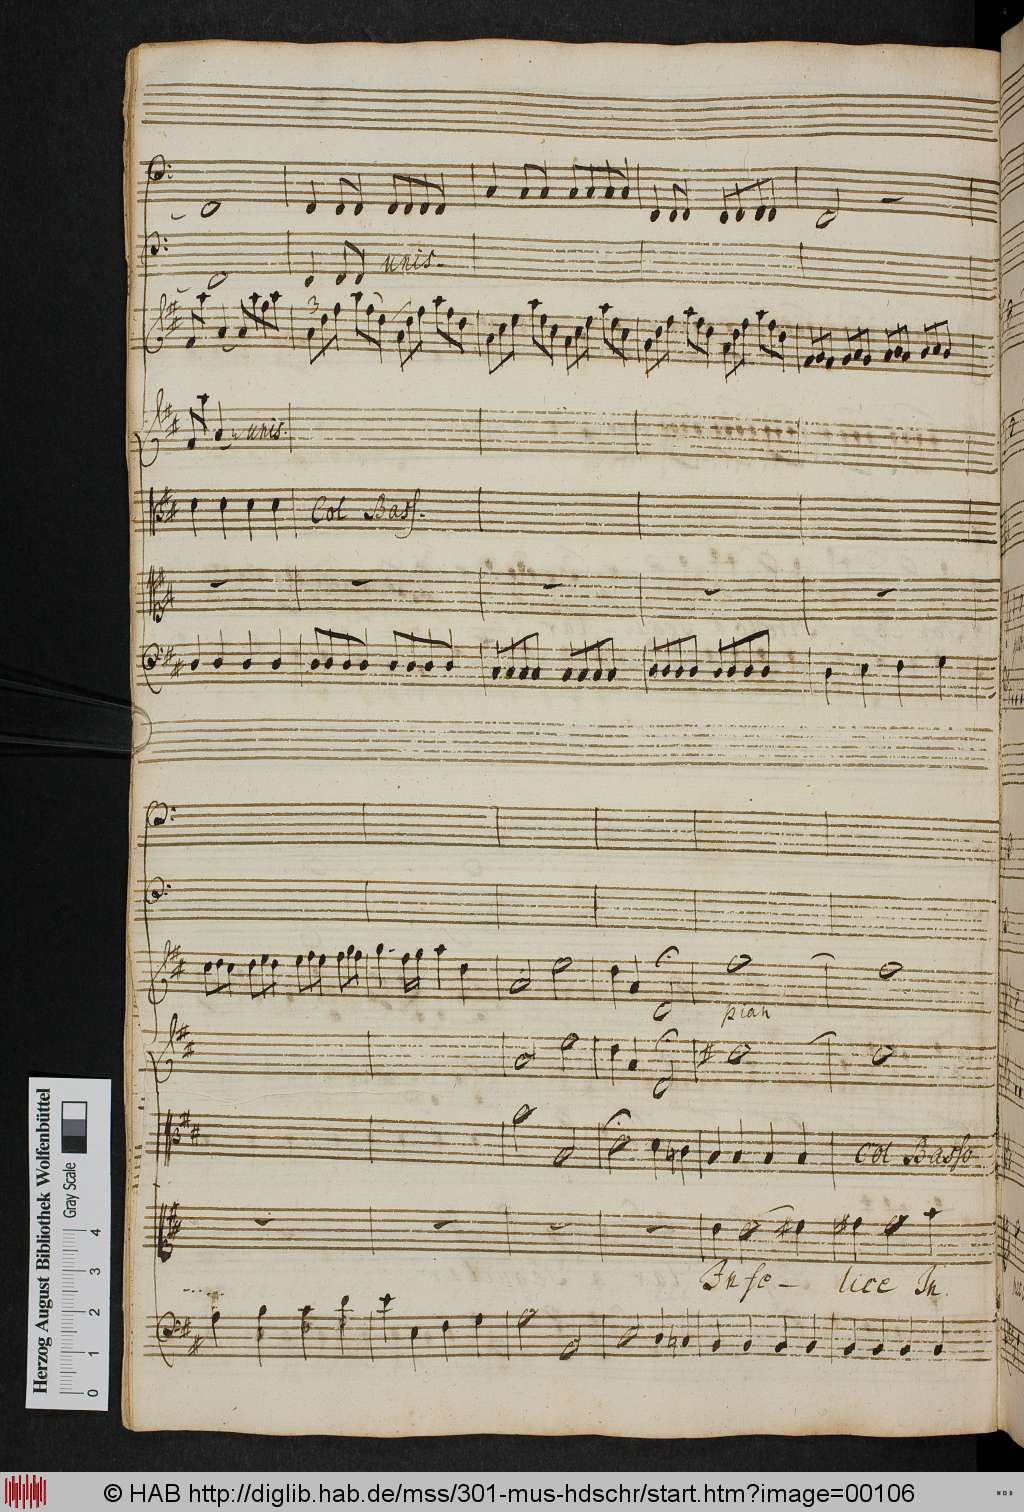 unis.
3
unis.
Col Bass.
pian
Col Basso
Infe- lice In.
Herzog August Bibliothek Wolfenbüttel
Gray Scale
0 1 2 3 4
© HAB http://diglib.hab.de/mss/301-mus-hdschr/start.htm?image=00106